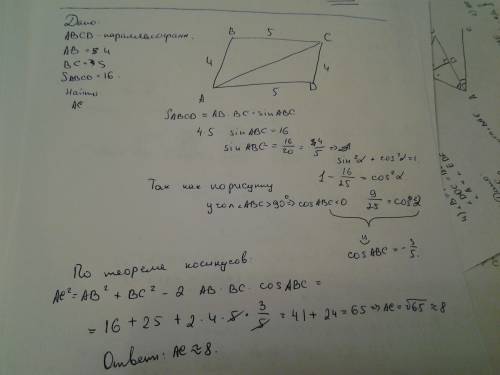 Дано:
ABCD - параллелограмм.
AB = 4
BC = 5
SABCD = 16.
Найти
AC
B 5 C
4 4
A 5 D
SABCD = AB · BC · sinABC
4·5 sinABC = 16
sinABC = 16/20 = 4/5 ⇒
sin²α + cos²α = 1
1 - 16/25 = cos²α
Так как по рисунку
угол <ABC > 90° ⇒ cosABC < 0 9/25 = cos²α
и
cosABC = -3/5.
По теореме косинусов:
AC² = AB² + BC² - 2 AB · BC · cosABC =
= 16 + 25 + 2 · 4 · 5 · 3/5 = 41 + 24 = 65 ⇒ AC = √65 ≈ 8
Ответ: AC ≈ 8.